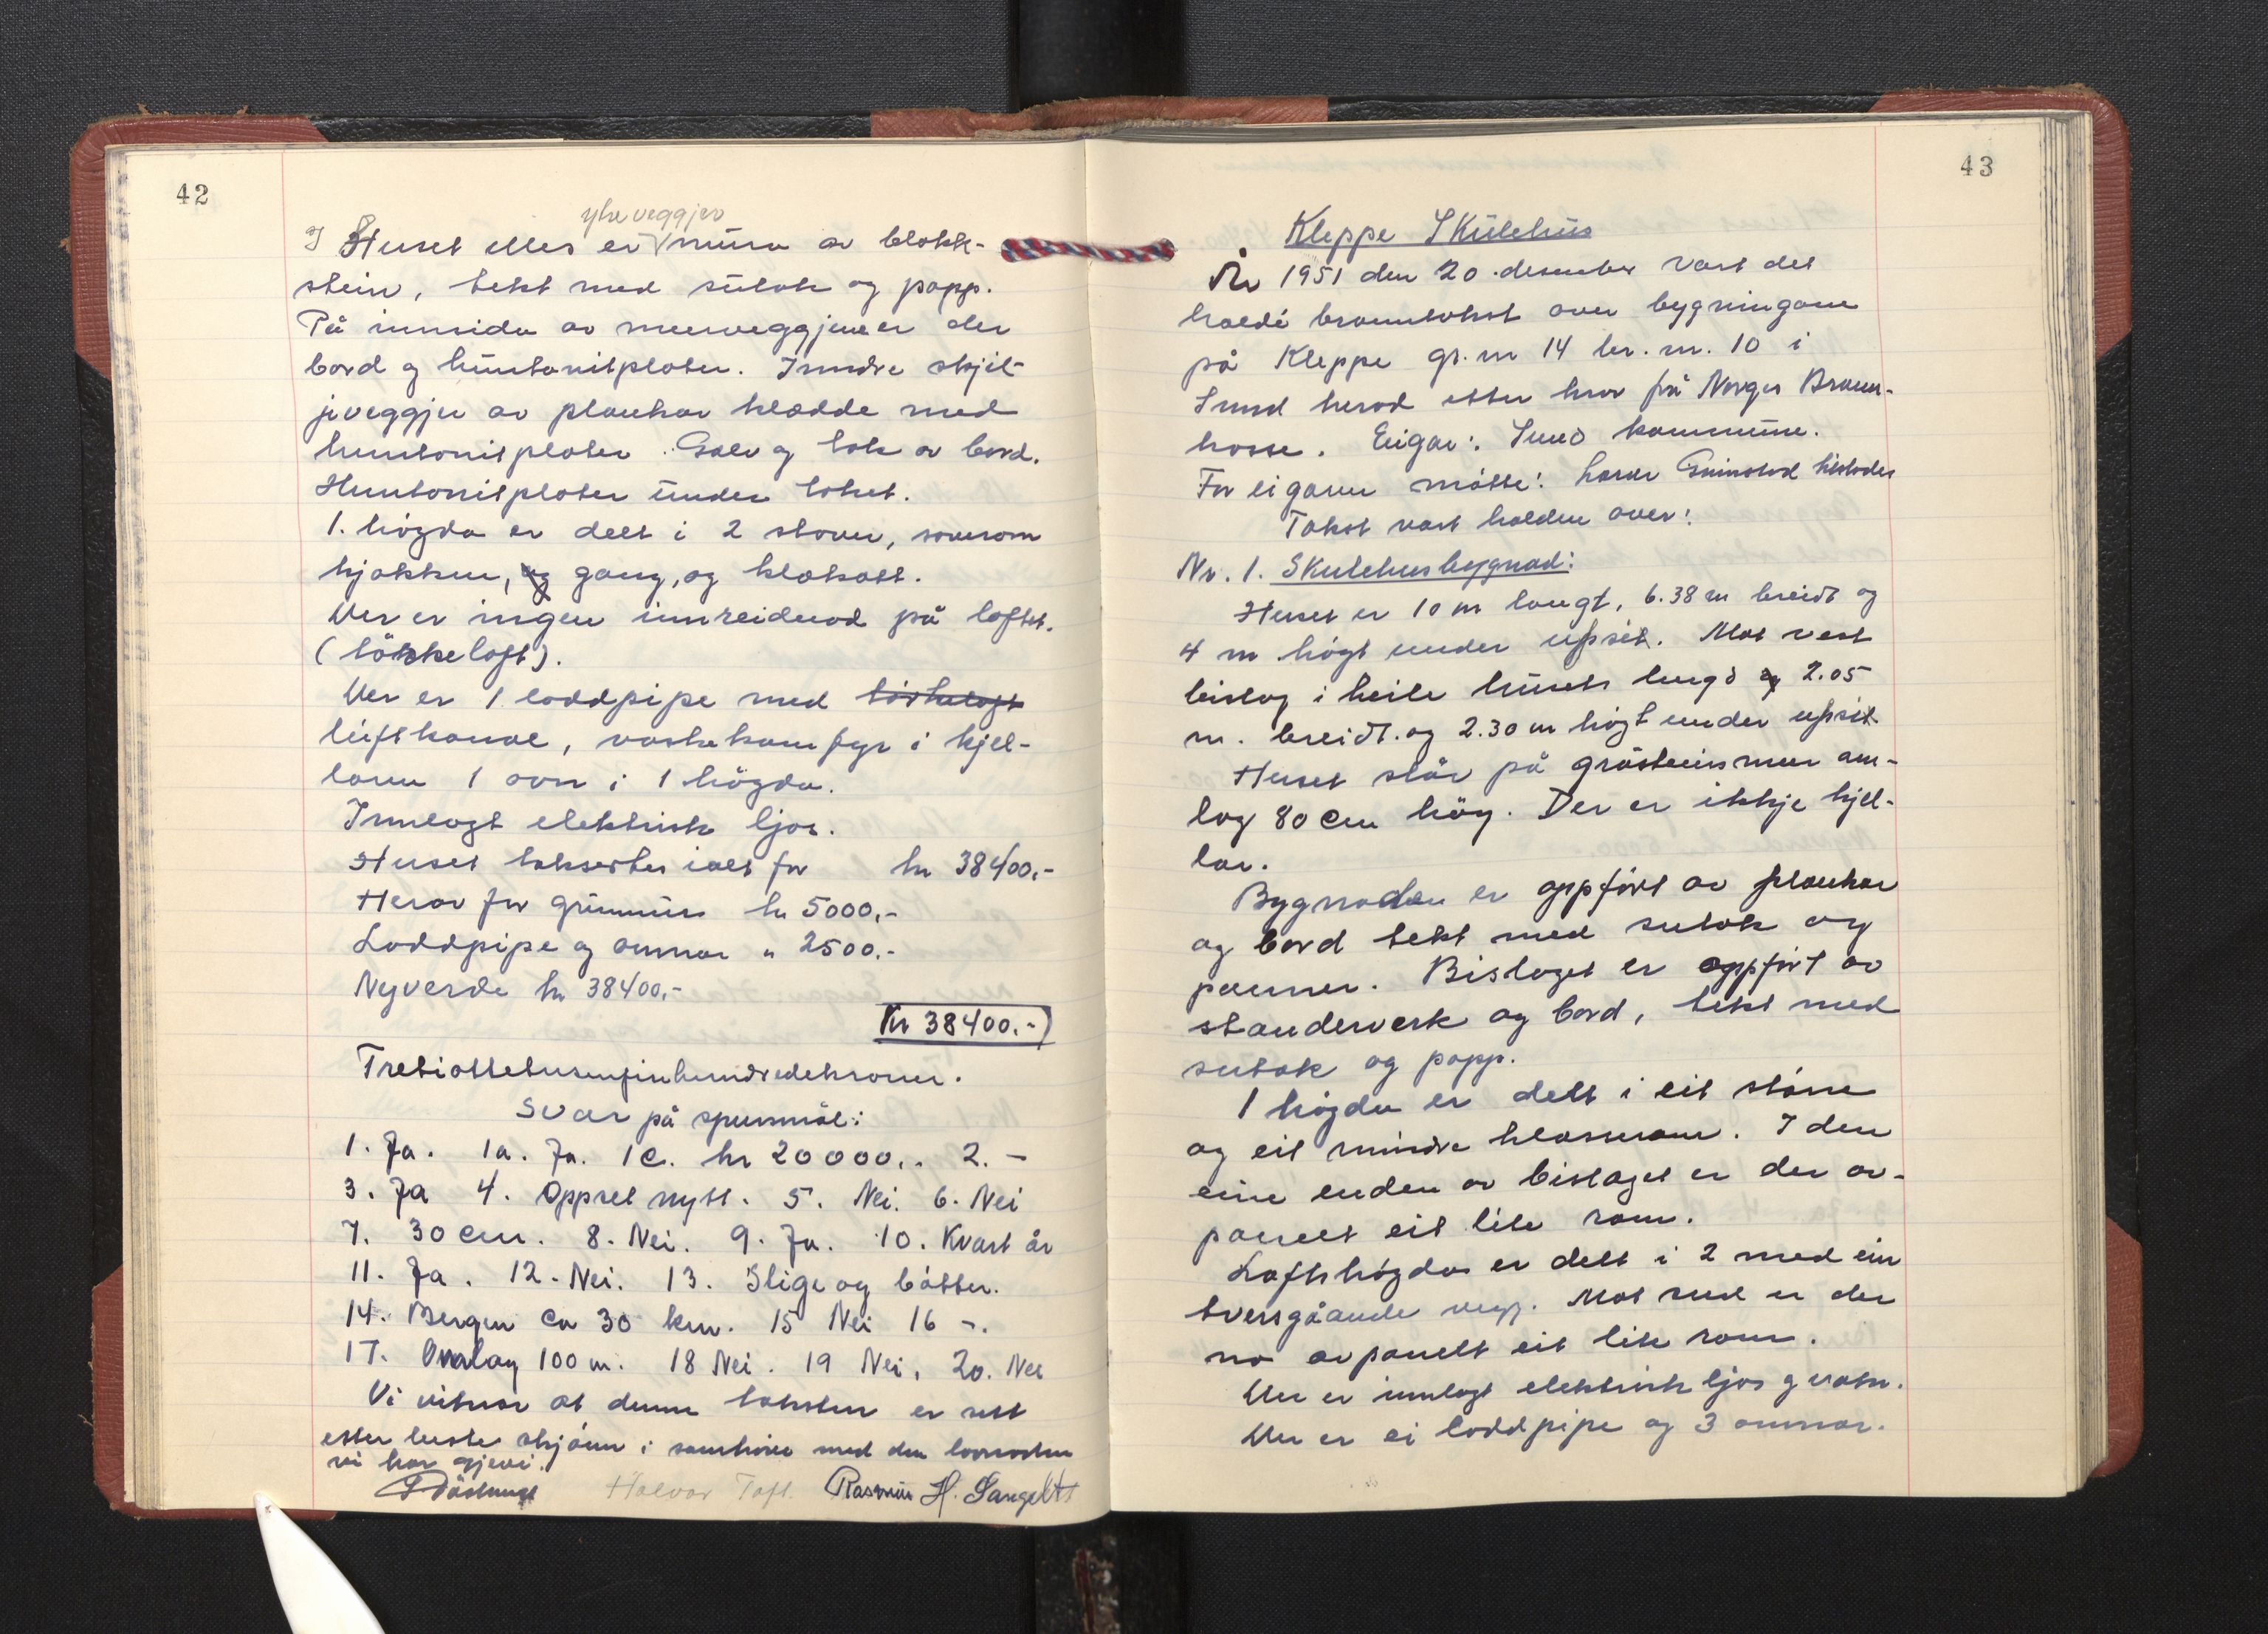 42
ytre veggjer
I Huset elles er mura av blokk-
stein, tekt med sutak og papp.
På innsida av murveggjene er der
bord og huntonitplater. Inndre skjil-
jeveggjer av plankar klædde med
huntonitplater. Golv og tak av bord.
Huntonitplater under taket.
1. högda er delt i 2 stover, soverom
kjøkken, og gang, og klekott.
Der er ingen innreidnad på loftet.
(törkeloft).
Der er 1 loddpipe med törkeloft
luftkanal, vaskekomfyr i kjel-
laren 1 ovn i 1 högda.
Innlagt elektrisk ljos.
Huset taksertes ialt for kr 38400,-
Herav for grunnmur kr 5000,-
Loddpipe og omnar " 2500.-
Nyverde kr 38400,-
Kr 38400.-
Trettiåttetusenfirehundredekroner.
Svar på spursmål:
1. Ja. 1a. Ja. 1c. kr 20000,. 2. -
3. Ja 4. Oppset nytt. 5. Nei. 6. Nei
7. 30 cm. 8. Nei. 9. Ja. 10. Kvart år
11. Ja. 12. Nei. 13. Stige og bötter.
14. Bergen ca 30 km. 15 Nei 16 -.
17. Omlag 100 m. 18 Nei. 19 Nei. 20. Nei
Vi vitnar at denne taksten er sett
etter beste skjönn i samhöve med den lovnaden
vi har gjeve.
Halvor Toft. Rasmus H. Sangolt
43
Kleppe Skülehüs
År 1951 den 20. desember vart det
halde branntakst over bygningane
på Kleppe gr. nr 14 br. nr. 10 i
Sund herad etter krav frå Norges Brann-
kasse. Eigar: Sund kommune.
For eigaren mötte: lærar
Takst vart halden over:
Nr. 1. Skulehusbygnad:
Huset er 10 m langt, 6.38 m breidt og
4 m högt under upsit. Mot vest
bislag i heile husets lengd og 2.05
m. breidt og 2.30 m högt under upsit
Huset står på gråsteinsmur om-
lag 80 cm høg. Der er ikkje kjel-
lar.
Bygnaden er oppfört av plankar
og bord tekt med sutak og
panner. Bislaget er oppfört av
standerverk og bord, tekt med
sutak og papp.
1 högda er delt i eit större
og eit mindre klasserom. I den
eine enden av bislaget er der av-
panelt eit lite rom.
Loftshögda er delt i 2 med ein
tversgåande vegg. Mot sud er der
no avpanelt eit lite rom.
Der er innlagt elektrisk ljos og vatn.
Der er ei loddpipe og 3 omnar.